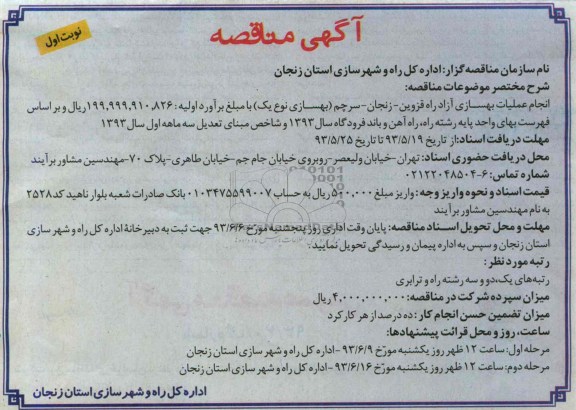 آگهی مناقصه
نوبت اول
نام سازمان مناقصه‌گزار: اداره کل راه و شهرسازی استان زنجان
شرح مختصر موضوعات مناقصه:
انجام عملیات بهسازی آزاد راه قزوین-زنجان-سرچم (بهسازی نوع یک) با مبلغ برآورد اولیه: ۱۹۹,۹۹۹,۹۱۰,۸۲۶ ریال و بر اساس
فهرست بهای واحد پایه رشته راه، راه آهن و باند فرودگاه سال ۱۳۹۳ و شاخص مبنای تعدیل سه ماهه اول سال ۱۳۹۳
مهلت دریافت اسناد: از تاریخ ۹۳/۵/۱۹ تا تاریخ ۹۳/۵/۲۵
محل دریافت حضوری اسناد: تهران-خیابان ولیعصر-روبروی خیابان جام جم-خیابان طاهری-پلاک ۷۰-مهندسین مشاور برآیند
شماره تماس: ۶-۰۲۱۲۲۰۴۸۵۰۴
قیمت اسناد و نحوه واریز وجه: واریز مبلغ ۵۰۰,۰۰۰ ریال به حساب ۰۱۰۳۴۷۵۵۹۹۰۰۷ بانک صادرات شعبه بلوار ناهید کد ۲۵۲۸
به نام مهندسین مشاور برآیند
مهلت و محل تحویل اسناد مناقصه: پایان وقت اداری روز پنجشنبه مورخ ۹۳/۶/۶ جهت ثبت به دبیرخانه اداره کل راه و شهرسازی
استان زنجان و سپس به اداره پیمان و رسیدگی تحویل نمایید.
رتبه مورد نظر:
رتبه‌های یک، دو و سه رشته راه و ترابری
میزان سپرده شرکت در مناقصه: ۴,۰۰۰,۰۰۰,۰۰۰ ریال
میزان تضمین حسن انجام کار: ده درصد از هر کارکرد
ساعت، روز و محل قرائت پیشنهادها:
مرحله اول: ساعت ۱۲ ظهر روز یکشنبه مورّخ ۹۳/۶/۹ -اداره کل راه و شهرسازی استان زنجان
مرحله دوم: ساعت ۱۲ ظهر روز یکشنبه مورّخ ۹۳/۶/۱۶ -اداره کل راه و شهرسازی استان زنجان
اداره کل راه و شهرسازی استان زنجان